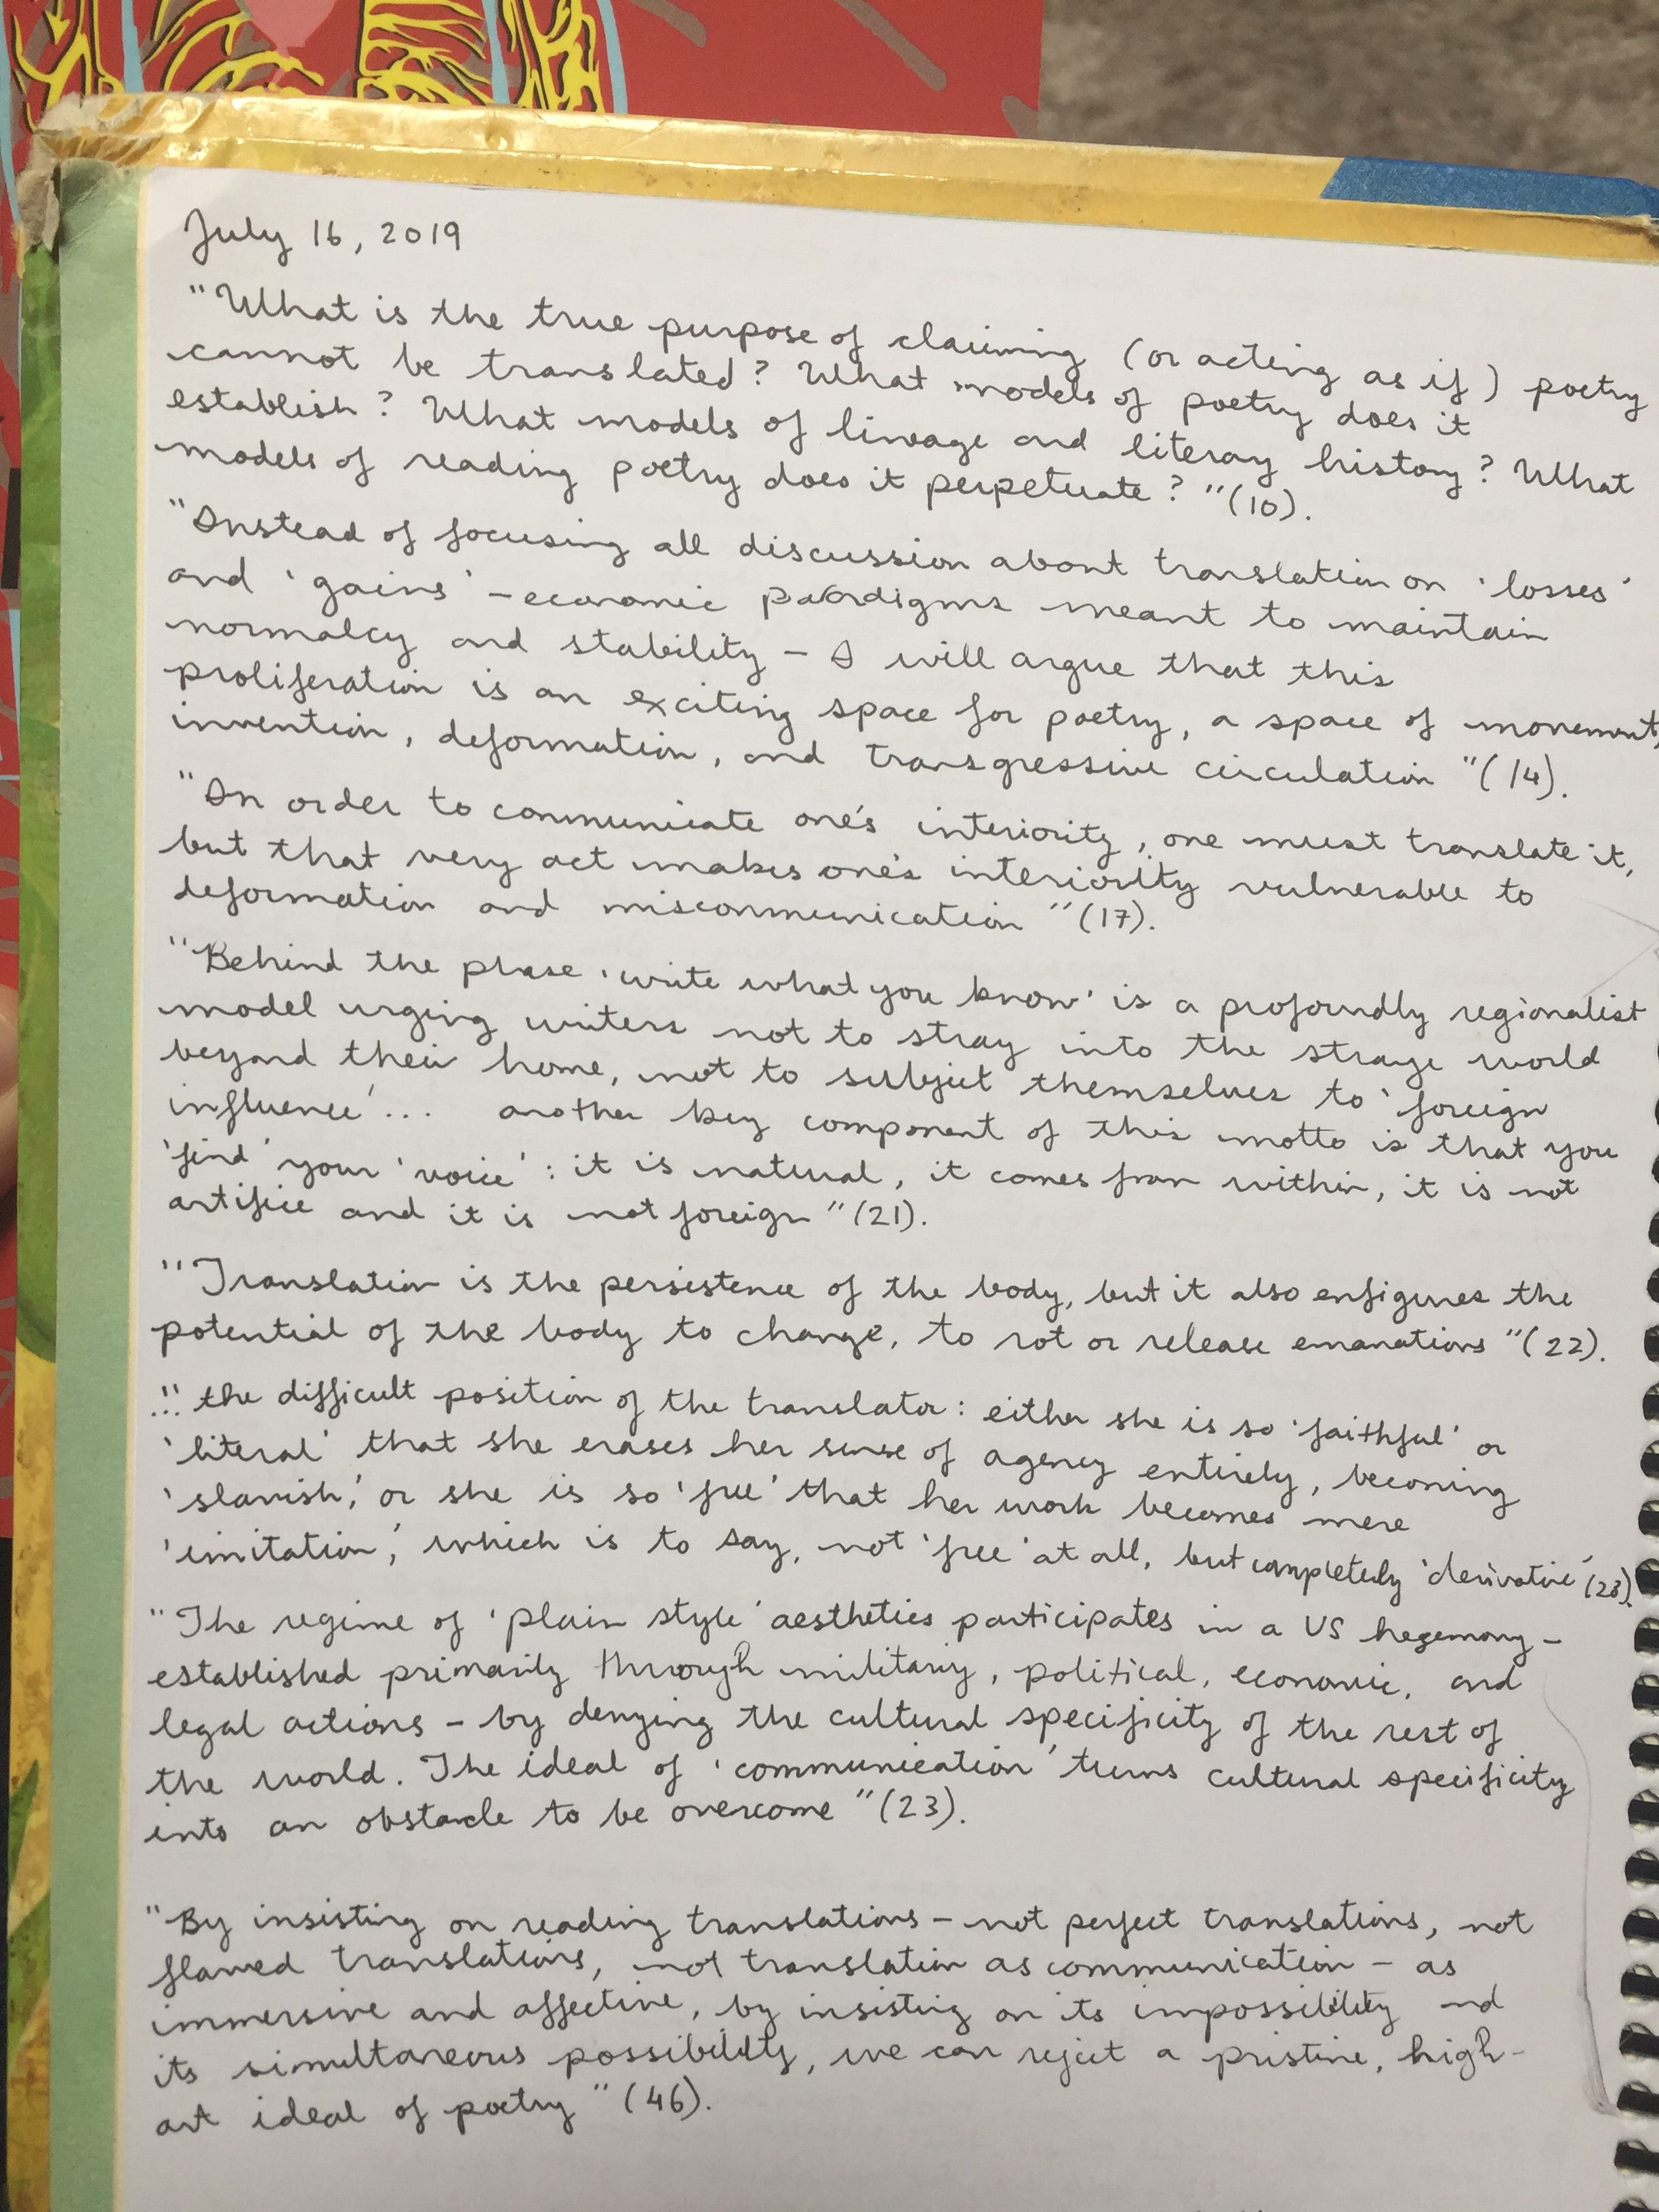 July 16, 2019
"What is the true purpose of claiming (or acting as if) poetry
cannot be translated? What models of poetry does it
establish? What models of lineage and literary history? What
models of reading poetry does it perpetuate?" (10).
"Instead of focusing all discussion about translation on 'losses'
and 'gains' - economic paradigms meant to maintain
normalcy and stability - I will argue that this
proliferation is an exciting space for poetry, a space of movement,
invention, deformation, and transgressive circulation" (14).
"In order to communicate one's interiority, one must translate it,
but that very act makes one's interiority vulnerable to
deformation and miscommunication" (17).
"Behind the phase 'write what you know' is a profoundly regionalist
model urging writers not to stray into the strange world
beyond their home, not to subject themselves to 'foreign
influence'... another key component of this motto is that you
'find' your 'voice': it is natural, it comes from within, it is not
artifice and it is not foreign" (21).
"Translation is the persistence of the body, but it also enfigures the
potential of the body to change, to rot or release emanations" (22).
"...the difficult position of the translator: either she is so 'faithful' or
'literal' that she erases her sense of agency entirely, becoming
'slavish,' or she is so 'free' that her work becomes mere
'imitation,' which is to say, not 'free' at all, but completely 'derivative' (23).
"The regime of 'plain style' aesthetics participates in a US hegemony -
established primarily through military, political, economic, and
legal actions - by denying the cultural specificity of the rest of
the world. The ideal of 'communication' turns cultural specificity
into an obstacle to be overcome" (23).
"By insisting on reading translations - not perfect translations, not
flawed translations, not translation as communication - as
immersive and affective, by insisting on its impossibility and
its simultaneous possibility, we can reject a pristine, high-
art ideal of poetry" (46).